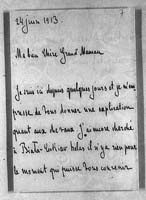 24 juin 1913
7
Ma bien chère Grand Maman
Je suis ici depuis quelques jours et je m'em
presse de vous donner une explication
quant aux J'ai encore cherché
à hélas il n'y a rien pour
le moment qui puisse vous convenir.